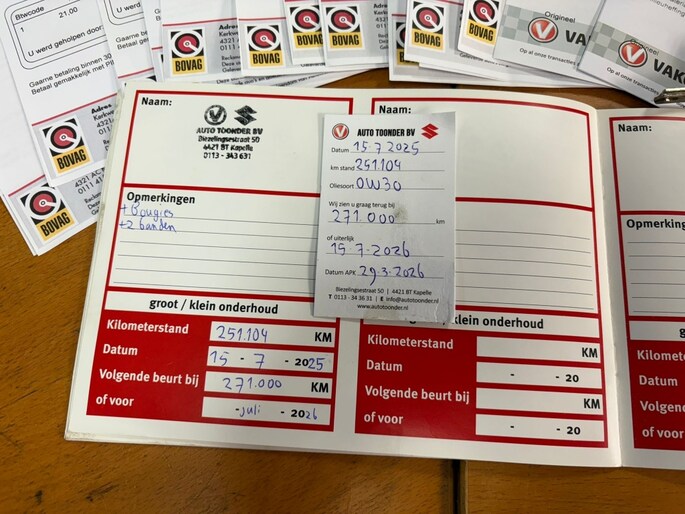 Btwcode
21,00
1
U werd geholpen door:
Gaarne betaling binnen 30
Betaal gemakkelijk met
BOVAG
BOVAG
BOVAG
BOVAG
BOVAG
BOVAG
BOVAG
Adres
Kerkw
4321
0111
Origineel
VAK
Op al onze transacties
Origineel
VAK
Op al onze transacties
Naam:
AUTO TOONDER BV
Biezelingsestraat 50
4421 BT Kapelle
0113 - 343 631
Opmerkingen
+ Bougies
+2 banden
groot / klein onderhoud
Kilometerstand
251.104 KM
Datum
15 - 7 - 2025
Volgende beurt bij
271.000 KM
of voor
- juli - 2026
AUTO TOONDER BV
Datum 15 7 2025
km stand 251.104
Oliesoort 0W30
Wij zien u graag terug bij
271.000 km
of uiterlijk
15-7-2026
Datum APK 29-3-2026
Biezelingsestraat 50 | 4421 BT Kapelle
T 0113 - 34 36 31 | E info@autotoonder.nl
www.autotoonder.nl
Naam:
/ klein onderhoud
Kilometerstand
KM
Datum
- - 20
Volgende beurt bij
KM
of voor
- - 20
Naam:
Opmerking
g
Kilometerstan
Datum
Volgende beurt
of voor